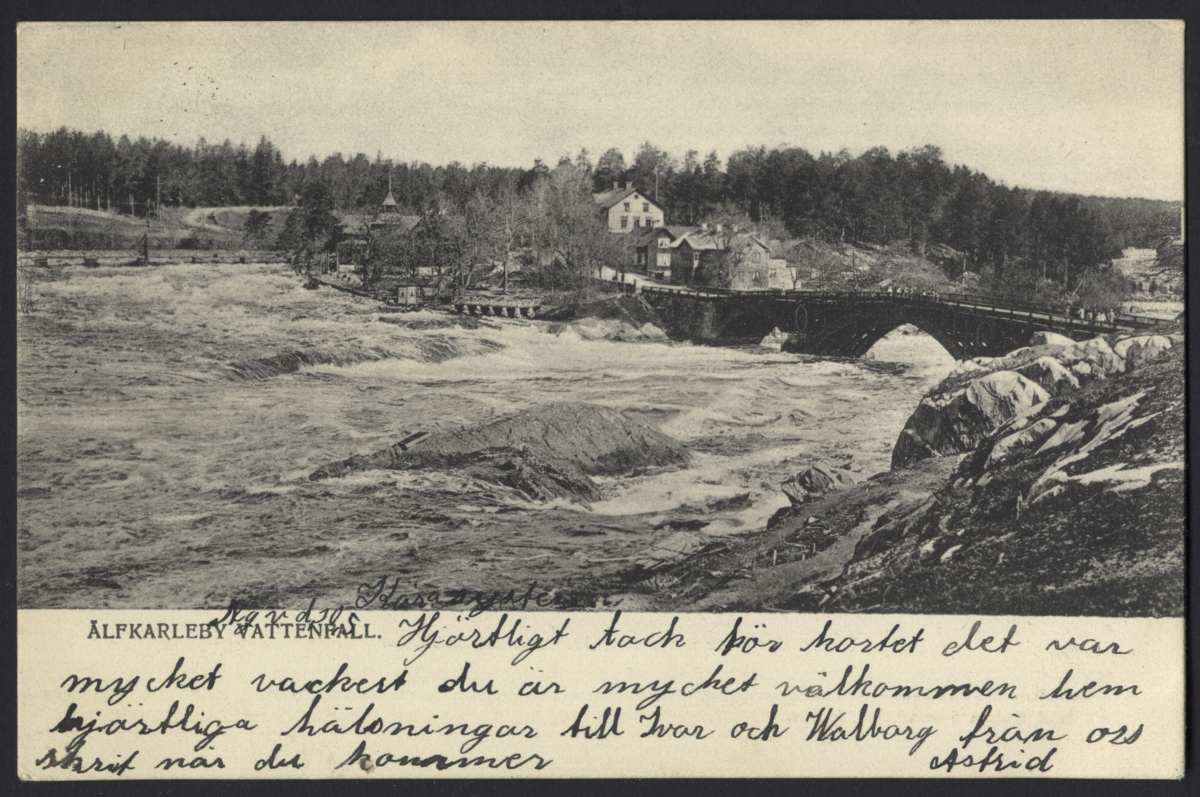 Kära syster
ÄLFKARLEBY VATTENFALL. Hjärtligt tack för kortet det var
mycket vackert du är mycket välkommen hem
hjärtliga hälsningar till Ivar och Walborg från oss
skrif når du kommer Astrid